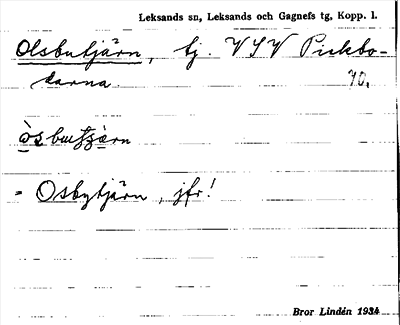 Leksands sn, Leksands och Gagnefs tg, Kopp. l.
Olsbutjärn, tj. VSV Pickbo-
darna. 70.
òsbutjärn
= Osbytjärn, jfr!
Bror Lindén 1934